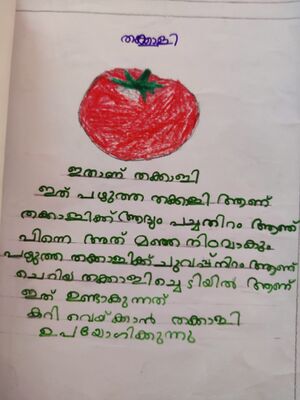 തക്കാളി
ഇതാണ് തക്കാളി
ഇത് പഴുത്ത തക്കാളി ആണ്
തക്കാളിക്ക് ആദ്യം പച്ചനിറം ആണ്
പിന്നെ അത് മഞ്ഞ നിറമാകും
പഴുത്ത തക്കാളിക്ക് ചുവപ്പ് നിറം ആണ്
ചെറിയ തക്കാളിച്ചെടിയിൽ ആണ്
ഇത് ഉണ്ടാകുന്നത്
കറി വെയ്ക്കാൻ തക്കാളി
ഉപയോഗിക്കുന്നു